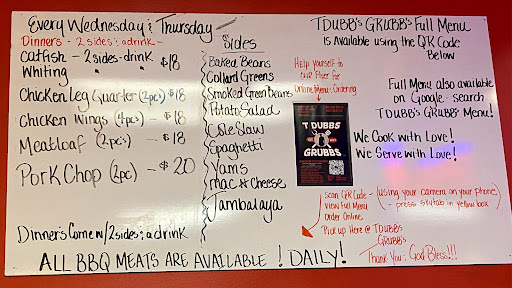 Every Wednesday & Thursday
Dinners - 2 sides & a drink -
Catfish - 2 sides - drink $18
Whiting " "
Chicken Leg Quarter (2pc's) $18
Chicken Wings (4pc's) - $18
Meatloaf (2pc's) - $18
Pork Chop (2pc) - $20
Dinner's Come w/ 2 sides & a drink
Sides
Baked Beans
Collard Greens
Smoked Green Beans
Potato Salad
Cole Slaw
Spaghetti
Yams
Mac & Cheese
Jambalaya
TDUBB's GRUBB's Full Menu
is Available using the QR Code
Below
Help yourself to
our Flyer for
Online Menu & Ordering
T DUBBS
GRUBBS
Full Menu also available
on Google - search
TDUBB's GRUBB's Menu!
We Cook with Love!
We Serve with Love!
Scan QR Code - (using your camera on your phone)
View Full Menu - press site/tab in yellow box
Order Online
Pick up Here @ TDUBB's
GRUBB's
Thank You & God Bless!!!
ALL BBQ MEATS ARE AVAILABLE! DAILY!